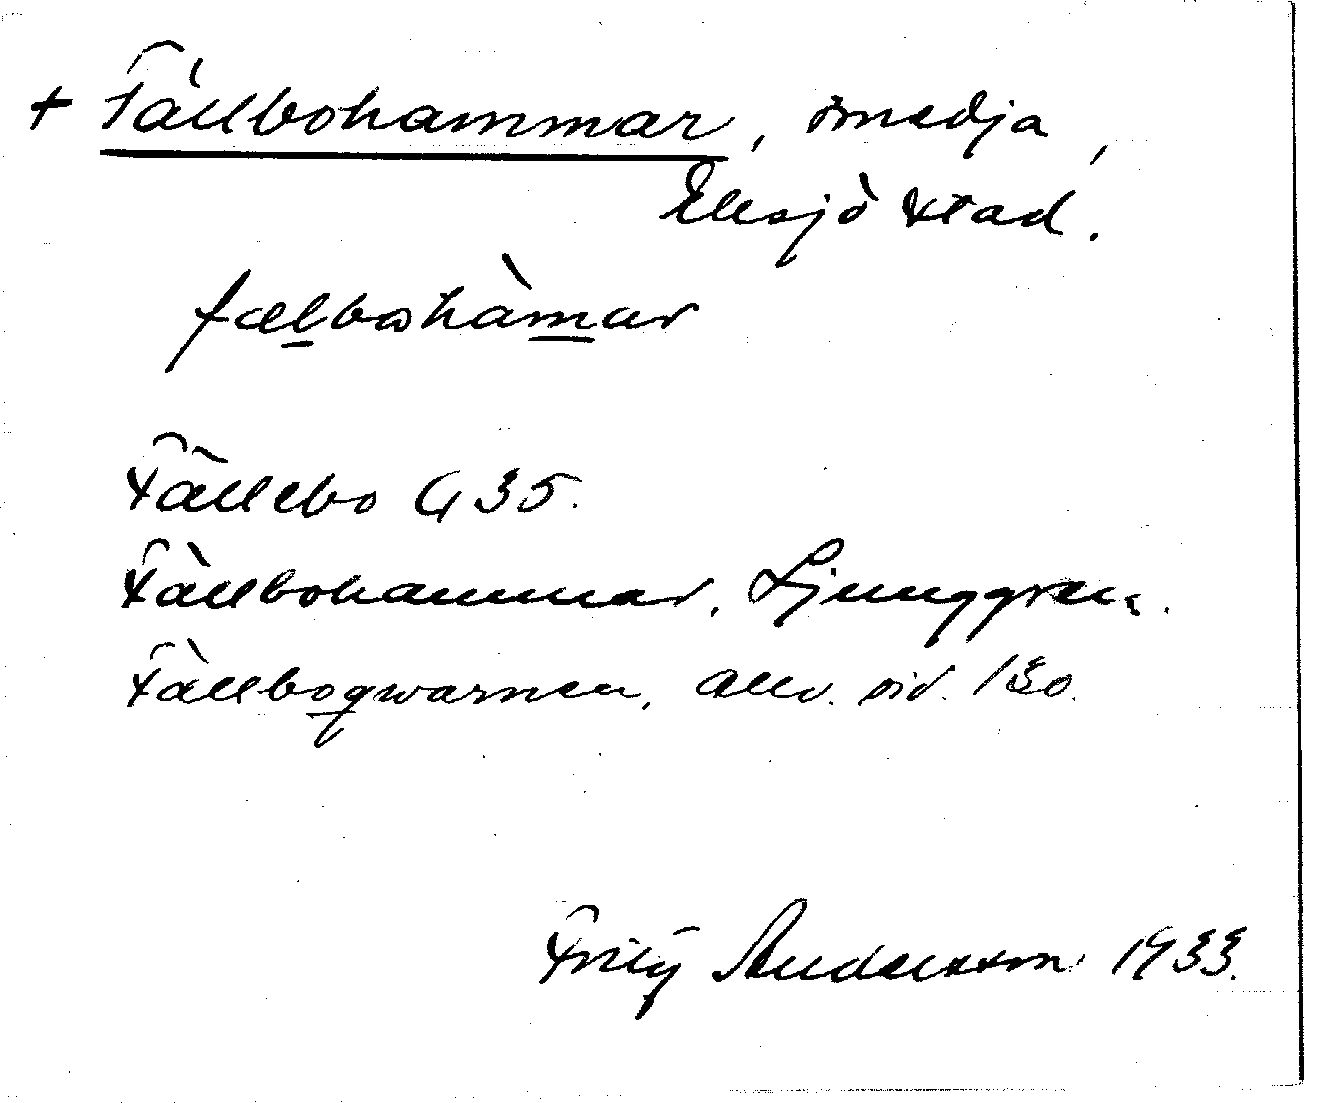 + Fällbohammar, smedja,
Eksjö stad.
fælbωhàmar
Fällebo G 35.
Fällbohammar, Ljunggren.
Fällboqwarnen, Allv. sid. 130.
Fritz Andersson 1933.